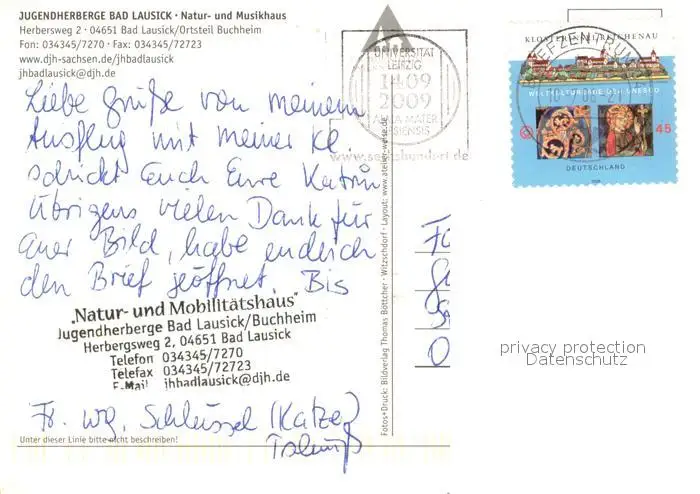 JUGENDHERBERGE BAD LAUSICK · Natur- und Musikhaus
Herbersweg 2 · 04651 Bad Lausick/Ortsteil Buchheim
Fon: 034345/7270 · Fax: 034345/72723
www.djh-sachsen.de/jhbadlausick
jhbadlausick@djh.de
Liebe Grüße von meinem
Ausflug mit meiner Kl
schickt Euch Eure Katrin
Übrigens vielen Dank für
euer Bild, habe endlich
den Brief geöffnet. Bis
„Natur- und Mobilitätshaus"
Jugendherberge Bad Lausick/Buchheim
Herbergsweg 2, 04651 Bad Lausick
Telefon 034345/7270
Telefax 034345/72723
E-Mail jhbadlausick@djh.de
Fr. wg. Schlüssel (Katze)
Unter dieser Linie bitte nicht beschreiben!
Fotos+Druck: Bildverlag Thomas Böttcher · Witzschdorf · Layout: www.atelier-weise.de
UNIVERSITÄT
LEIPZIG
1409
2009
ALMA MATER
LIPSIENSIS
www.sechshundert.de
KLOSTERINSEL REICHENAU
BRIEFZENTRUM
WELTKULTURERBE DER UNESCO
45
DEUTSCHLAND
2008
privacy protection
Datenschutz